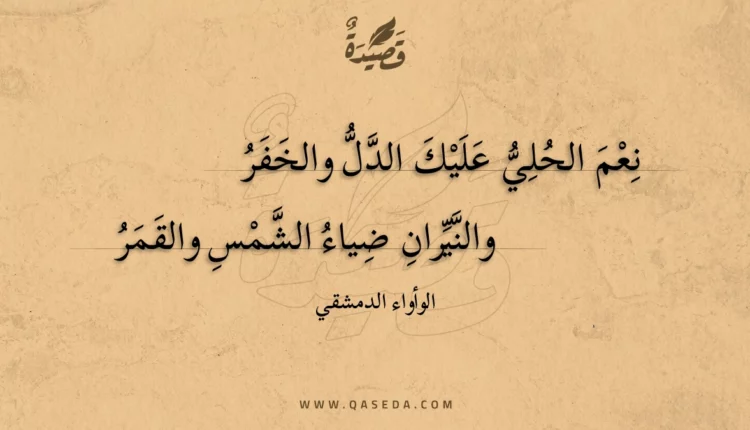 قَصِيدَةٌ
نِعْمَ الحُلِيُّ عَلَيْكَ الدَّلُّ والخَفَرُ
والنَّيِّرانِ ضِياءُ الشَّمْسِ والقَمَرُ
الوأواء الدمشقي
WWW.QASEDA.COM